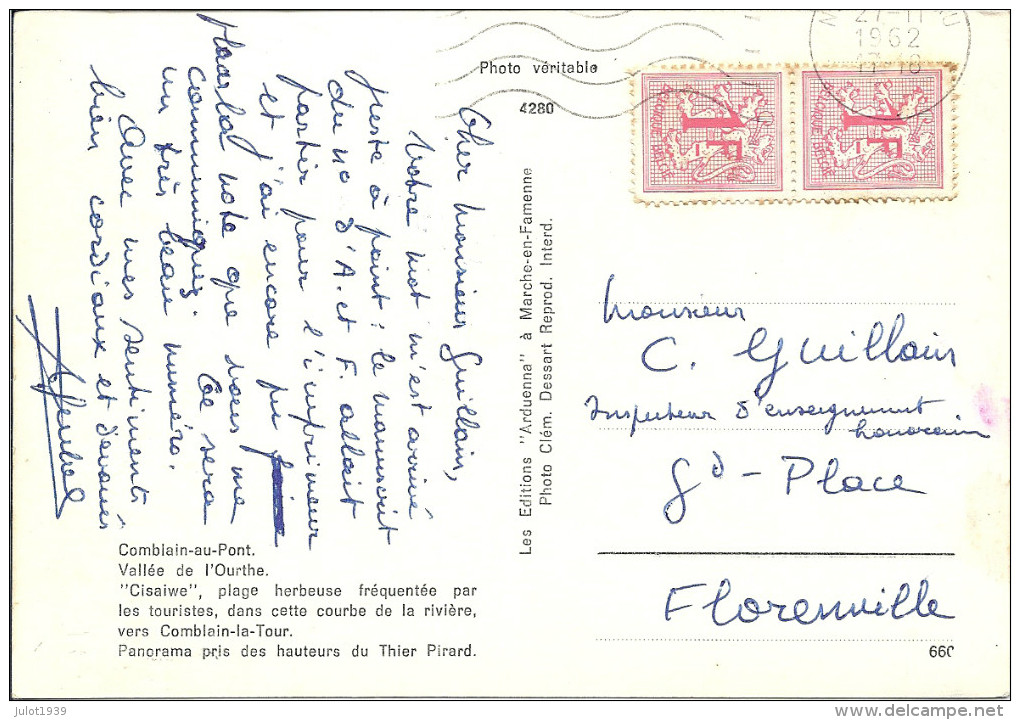 Photo véritable
4280
27-11
1962
11-18
1F
BELGIQUE BELGIË
1F
BELGIQUE BELGIË
Cher Monsieur Guillain,
Votre mot m'est arrivé
juste à point : le manuscrit
du no d'A. et F. allait
partir pour l'imprimeur
et j'ai encore pu
la note que vous me
communiquez. Ce sera
un très beau numéro.
Avec mes sentiments
bien cordiaux et dévoués
Les Editions "Arduenna" à Marche-en-Famenne
Photo Clém. Dessart Reprod. Interd.
Monsieur
C. Guillain
Inspecteur d'enseignement
honoraire
Gd-Place
Florenville
Comblain-au-Pont.
Vallée de l'Ourthe.
"Cisaiwe", plage herbeuse fréquentée par
les touristes, dans cette courbe de la rivière,
vers Comblain-la-Tour.
Panorama pris des hauteurs du Thier Pirard.
660
julot1939
delcampe.net